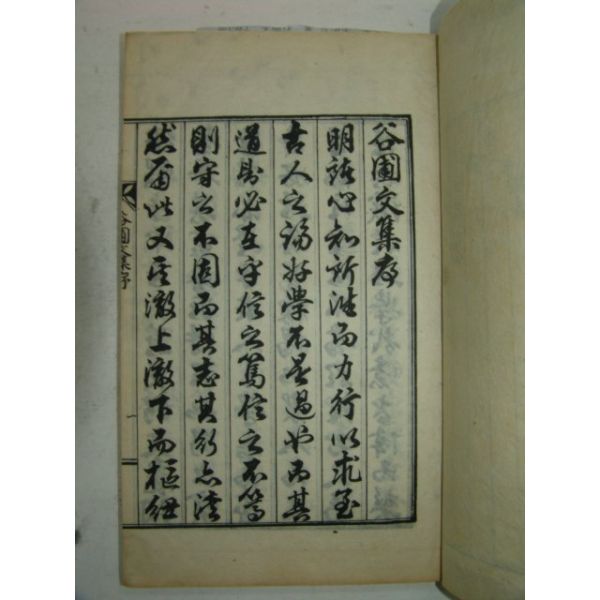 谷圃文集序
明諸心知所往而力行以求至
古人之論好學不是過也而其
道則必在乎信之篤信之不篤
則守之不固而其志其行亦淺
然爾此又其澈上澈下而樞紐
谷圃文集序
一